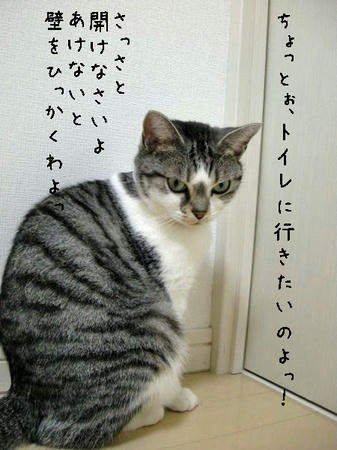 ちょっとぉ、トイレに行きたいのよっ！
さっさと
開けなさいよ
あけないと
壁をひっかくわよっ